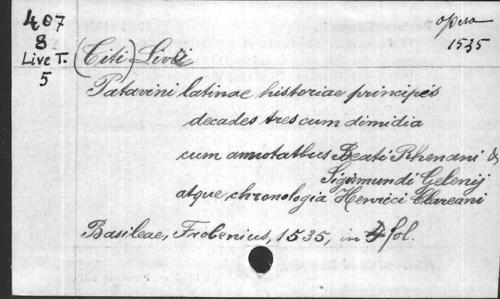 407
8
Live T.
5
opera
1535
(Titi) Livii
Patavini latinae historiae principis
decades tres cum dimidia
cum annotatbus Beati Rhenani &
Sigismundi Gelenij
atque chronologia Henrici Glareani
Basileae, Frobenius, 1535, in fol.